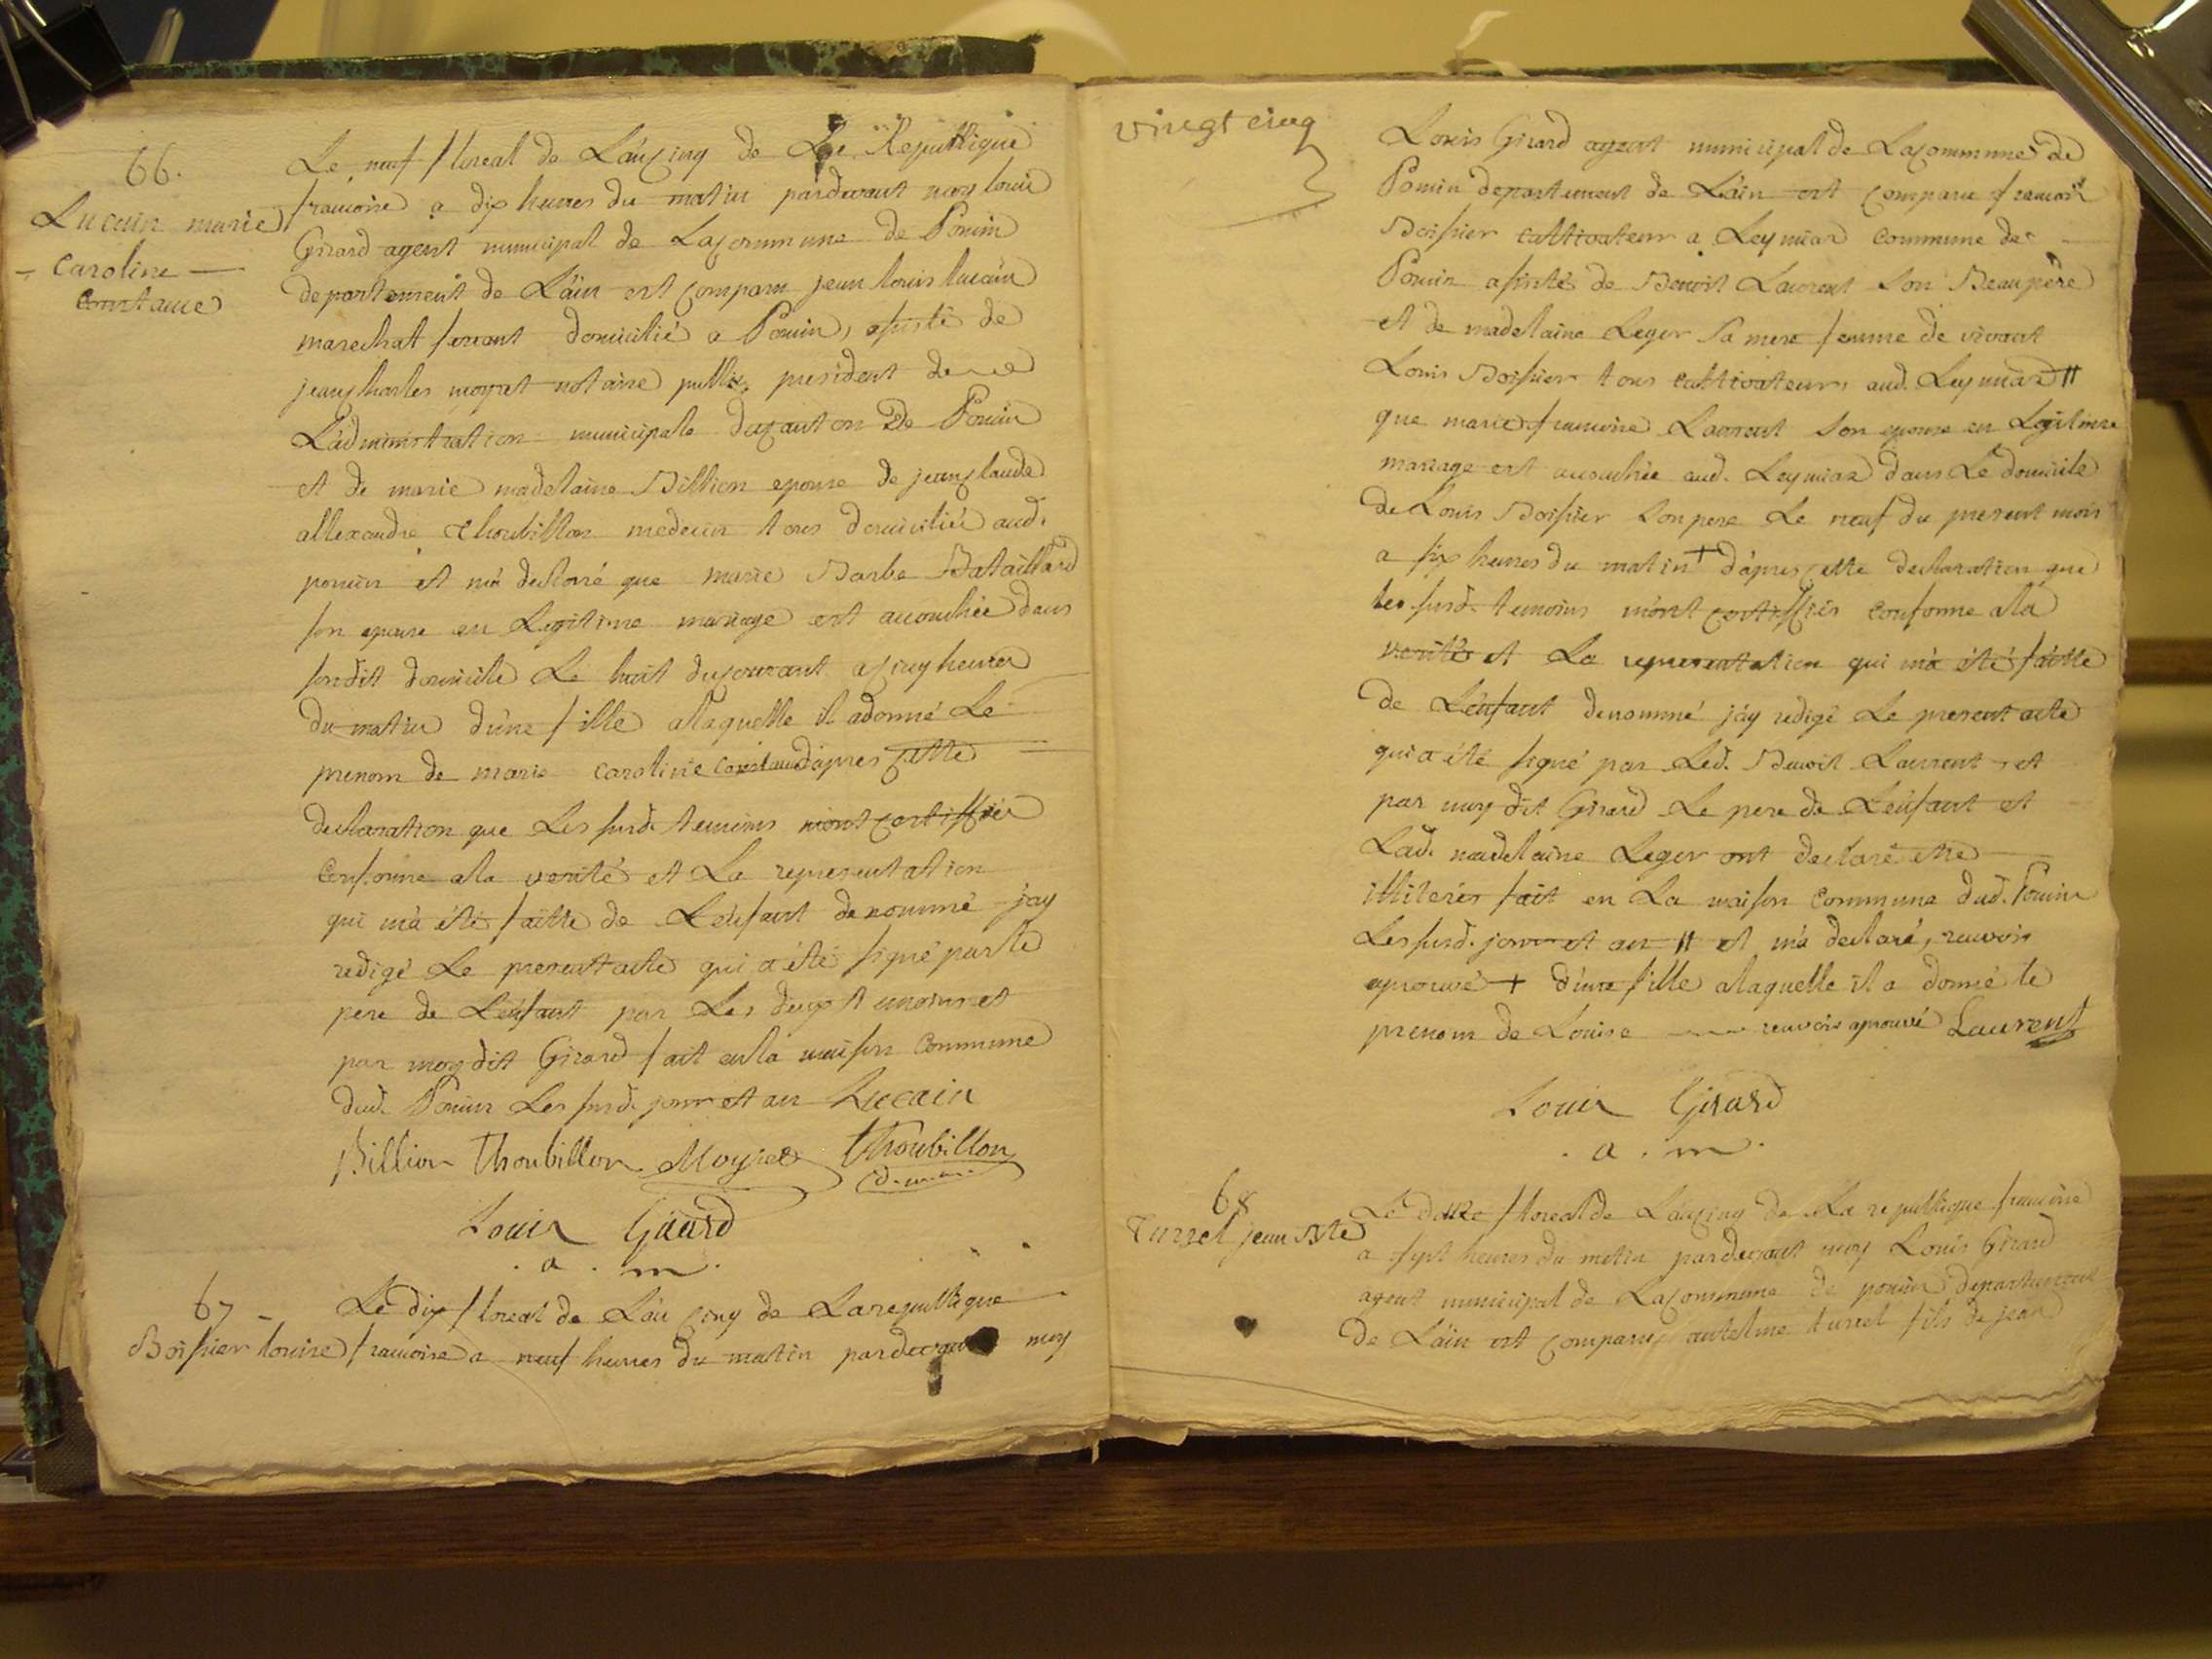 66.
Lucain marie
- Caroline -
Constance
Le neuf floreal de L'an cinq de La Republique
francoise a dix heures du matin pardevant moy louis
Girard agent municipal de La commune de Poncin
departement de L'ain est comparu jean louis lucain
marechal ferrant domicilié a Poncin, assisté de
jean charles moyret notaire public, president de
L'administration municipale du canton De Poncin
et de marie madelaine Billion epouse de jean claude
allexandre thoubillon medecin tous domiciliés aud.
poncin et m'a declaré que marie Barbe Bataillard
son epouse en Legitime mariage est acouchée dans
sondit domicile Le huit du courant a cinq heures
du matin d'une fille a laquelle il a donné Le
prenom de marie caroline constance d'apres cette
declaration que Les susd. temoins m'ont certiffiés
Conforme a la verité et La representation
qui m'a été faitte de L'enfant denommé j'ay
redigé Le present acte qui a été signé par le
pere de L'enfant par Les deux temoins et
par moy dit Girard fait en la maison Commune
dud. Poncin Les susd. jour et an Lucain
Billion Thoubillon Moyret Thoubillon
Louis Girard
. a . m .
67
Boissier louise
Le dix floreal de L'an cinq de La republique
francoise a neuf heures du matin pardevant moy
vingt cinq
Louis Girard agent municipal de La commune de
Poncin departement de L'ain est comparu francois
Boissier cultivateur a Leymiar commune de
Poncin assisté de Benoit Laurent Son Beaupere
et de madelaine Leger Sa mere femme de vivant
Louis Boissier tous cultivateurs aud. Leymiar #
que marie francoise Laurent Son epouse en Legitime
mariage est acouchée aud. Leymiar dans Le domicile
de Louis Boissier Son pere Le neuf du present mois
a six heures du matin + d'apres cette declaration que
les susd. temoins m'ont certiffiés conforme a la
verité et La representation qui m'a été faitte
de L'enfant denommé j'ay redigé Le present acte
qui a été signé par Led. Benoit Laurent, et
par moy dit Girard Le pere de L'enfant et
Lad. madelaine Leger ont declaré etre
illiterés fait en La maison Commune dud. Poncin
Les susd. jour et an # et m'a declaré, renvois
aprouvé + d'une fille a laquelle il a donné le
prenom de Louise renvois aprouvé Laurent
Louis Girard
. a . m .
68
Turrel jean Bte
Le douze floreal de L'an cinq de La republique francoise
a sept heures du matin pardevant moy Louis Girard
agent municipal de La commune de poncin departement
de L'ain est comparu antelme turrel fils de jean